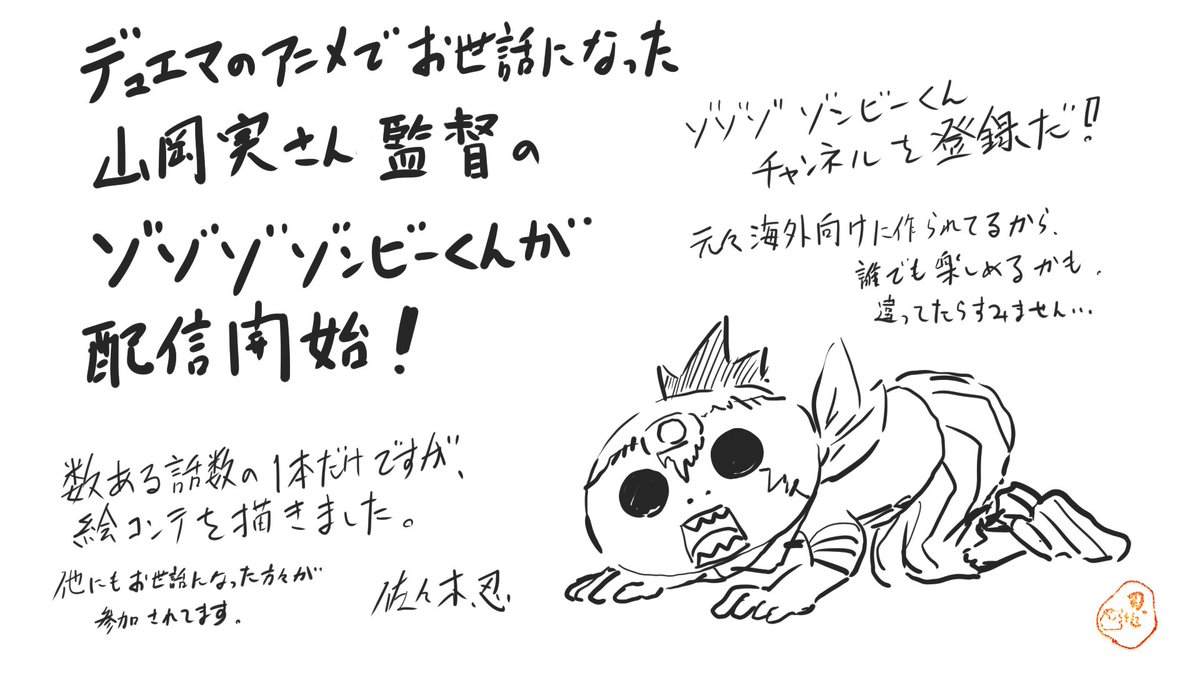 デュエマのアニメでお世話になった
山岡実さん監督の
ゾゾゾゾンビーくんが
配信開始!
数ある話数の1本だけですが、
絵コンテを描きました。
他にもお世話になった方々が
参加されてます。
佐々木忍
ゾゾゾゾンビーくん
チャンネルを登録だ!!
元々海外向けに作られてるから、
誰でも楽しめるかも。
違ってたらすみません…